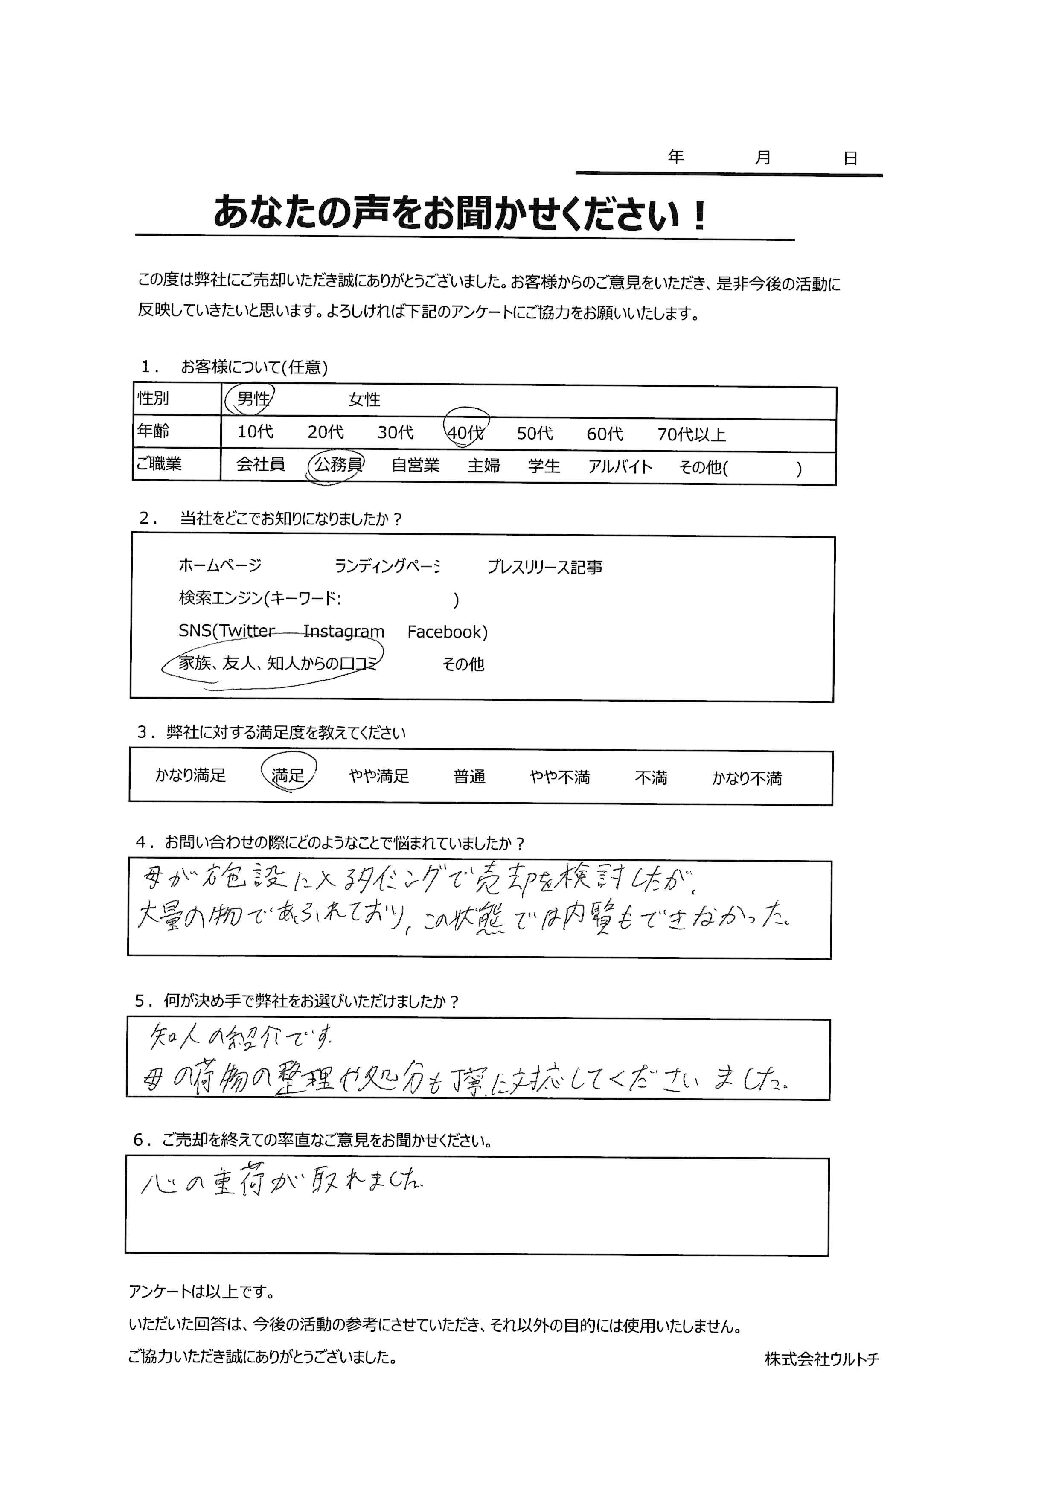 年 月 日
あなたの声をお聞かせください！
この度は弊社にご売却いただき誠にありがとうございました。お客様からのご意見をいただき、是非今後の活動に
反映していきたいと思います。よろしければ下記のアンケートにご協力をお願いいたします。
1． お客様について(任意)
性別 男性 女性
年齢 10代 20代 30代 40代 50代 60代 70代以上
ご職業 会社員 公務員 自営業 主婦 学生 アルバイト その他( )
2． 当社をどこでお知りになりましたか？
ホームページ ランディングページ プレスリリース記事
検索エンジン(キーワード: )
SNS(Twitter Instagram Facebook)
家族、友人、知人からの口コミ その他
3．弊社に対する満足度を教えてください
かなり満足 満足 やや満足 普通 やや不満 不満 かなり不満
4．お問い合わせの際にどのようなことで悩まれていましたか？
母が施設に入るタイミングで売却を検討したが、
大量の物であふれており、この状態では内覧もできなかった。
5．何が決め手で弊社をお選びいただけましたか？
知人の紹介です。
母の荷物の整理や処分も丁寧に対応してくださいました。
6．ご売却を終えての率直なご意見をお聞かせください。
心の重荷が取れました
アンケートは以上です。
いただいた回答は、今後の活動の参考にさせていただき、それ以外の目的には使用いたしません。
ご協力いただき誠にありがとうございました。 株式会社ウルトチ